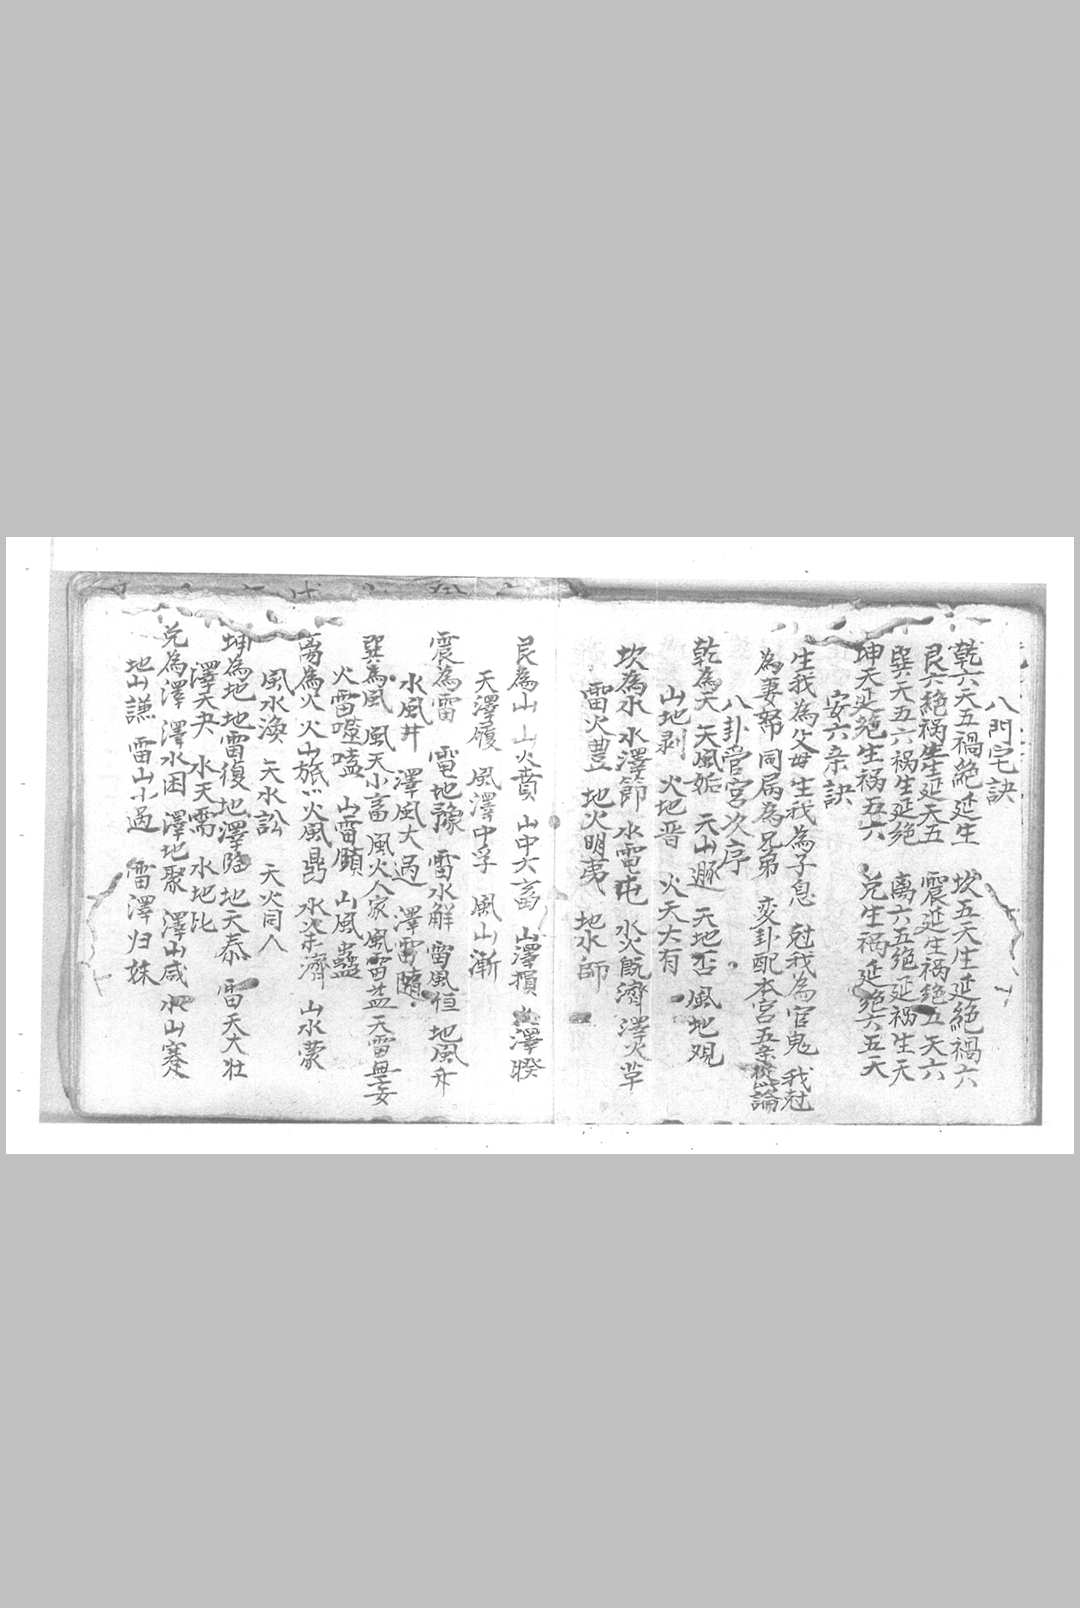 八門宅訣
乾六天五禍絕延生 坎五天生延絕禍六
艮六絕祸生生延天五 震延生祸絕五天六
巽天五六祸生延绝 离六五绝延祸生天
坤天延绝生祸五六 兑生祸延绝六五天
安六亲訣
生我為父母 生我為子息 尅我為官鬼 我尅
為妻帑 同局為兄弟 变卦配本宮五亲從論
八卦管宮次序
乾為天 天風姤 天山遯 天地否 風地观
山地剥 火地晋 火天大有
坎為水 水澤節 水雷屯 水火旣濟 澤火革
雷火豊 地火明夷 地水師
艮為山 山火賁 山中大畜 山澤損 火澤睽
天澤履 風澤中孚 風山漸
震為雷 雷地豫 雷水觧 雷風恒 地風升
水風井 澤風大過 澤雷隨
巽為風 風天小畜 風火人家 風雷益 天雷無妄
火雷噬嗑 山雷頤 山風蠱
离為火 火山旅 火風鼎 水火未濟 山水蒙
風水渙 天水訟 天火同人
坤為地 地雷復 地澤臨 地天泰 雷天大壮
澤天夬 水天需 水地比
兑為澤 澤水困 澤地聚 澤山咸 水山蹇
地山謙 雷山小過 雷澤归妹